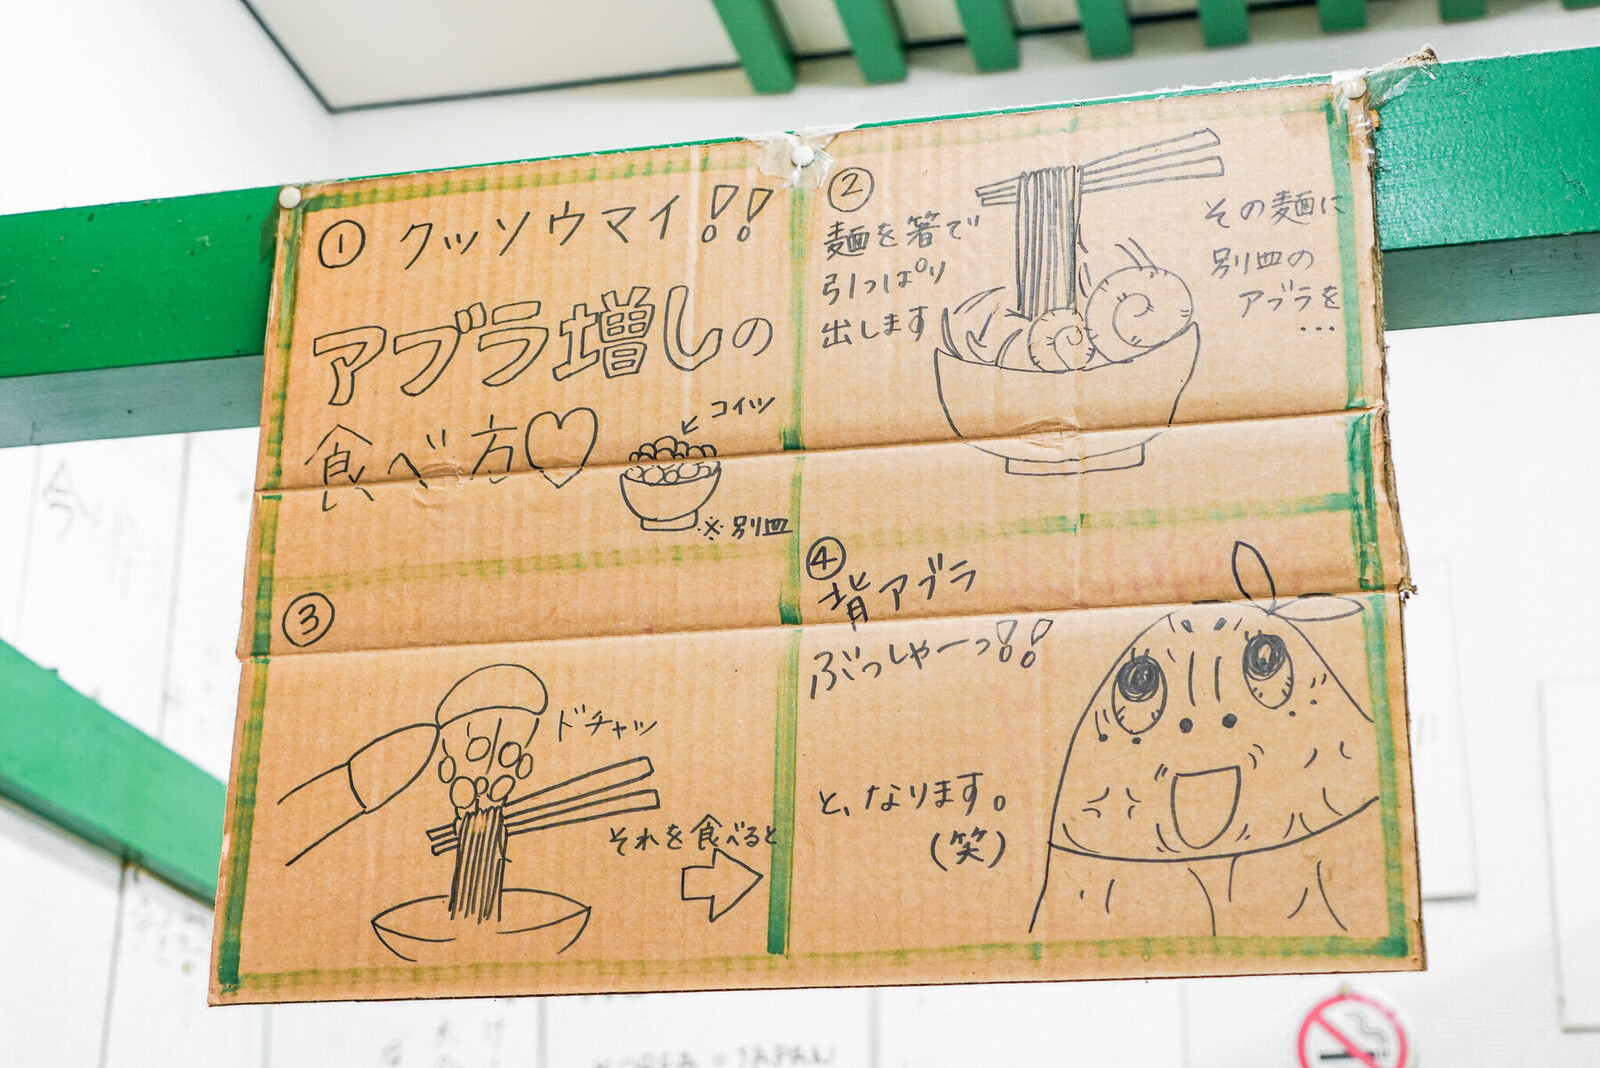 ① クッソウマイ!!
アブラ増しの
食べ方♡
コイツ
※別皿
②
麺を箸で
引っぱり
出します
その麺に
別皿の
アブラを
...
③
ドチャッ
それを食べると
④
背アブラ
ぶっしゃーっ!!
と、なります。
(笑)
KOREA ♥ JAPAN